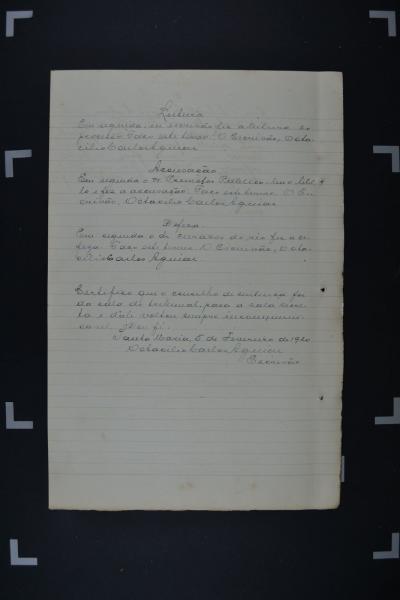 Leitura
Em seguida, eu escrivão fiz a leitura do
processo. Faço este termo. O Escrivão, Octa-
cilio Carlos Aguiar
Acusação
Em seguida o Dr. Promotor Publico leu o libel-
lo e fez a accusação. Faço este termo. O Es-
crivão, Octacilio Carlos Aguiar
Defesa
Em seguida o dr. curador do réo fez a de-
feza. Faço este termo. O Escrivão, Octa-
cilio Carlos Aguiar
Certifico que o conselho de sentença foi
da sala do tribunal, para a sala secre-
ta e d'ali voltou sempre incommuni-
cavel. Dou fé.
Santa Maria, 5 de Fevereiro de 1920
Octacilio Carlos Aguiar
Escrivão